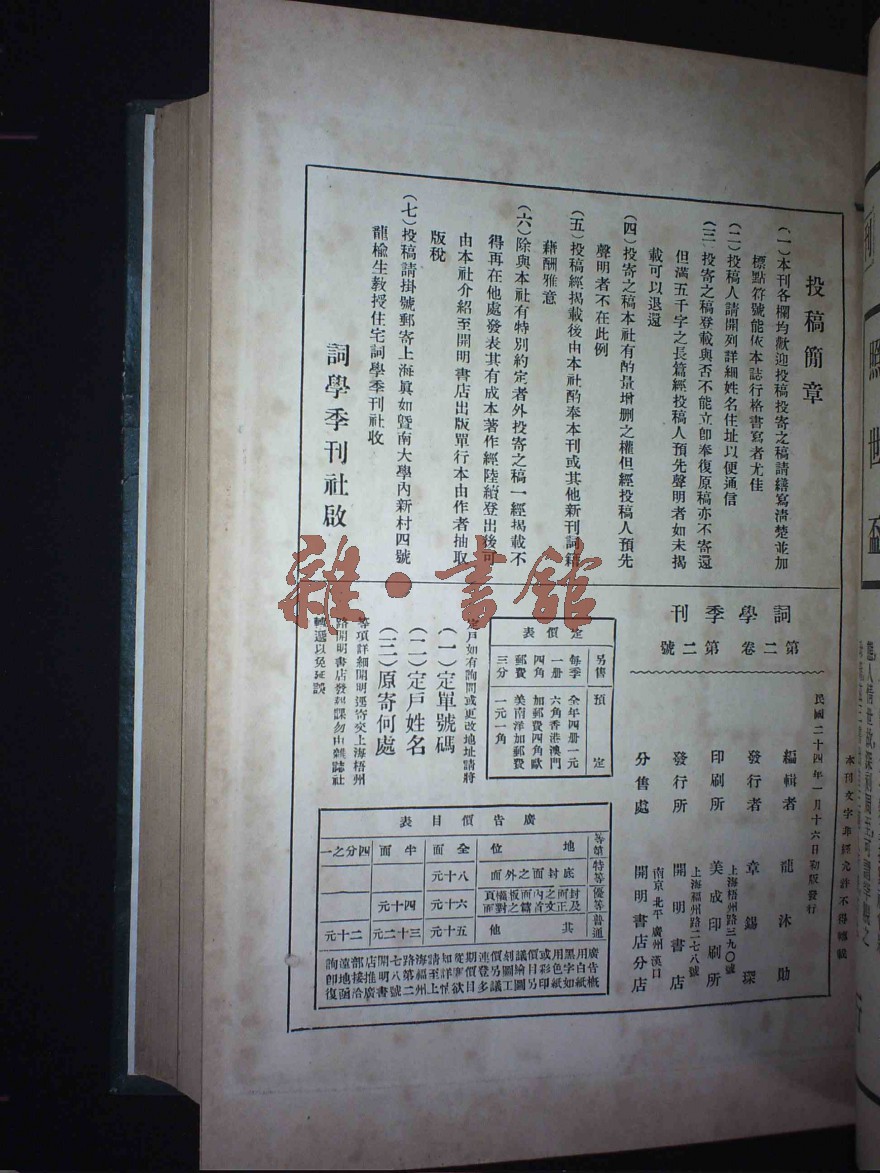 投稿簡章
（一）本刊各欄均歡迎投稿投寄之稿請繕寫清楚並加
標點符號能依本誌行格書寫者尤佳
（二）投稿人請開列詳細姓名住址以便通信
（三）投寄之稿登載與否不能立卽奉復原稿亦不寄還
但滿五千字之長篇經投稿人預先聲明者如未揭
載可以退還
（四）投寄之稿本社有酌量增删之權但經投稿人預先
聲明者不在此例
（五）投稿經揭載後由本社酌奉本刊或其他新刊詞籍
藉酬雅意
（六）除與本社有特別約定者外投寄之稿一經揭載不
得再在他處發表其有成本著作經陸續登出後可
由本社介紹至開明書店出版單行本由作者抽取
版稅
（七）投稿請掛號郵寄上海眞如暨南大學內新村四號
龍楡生教授住宅詞學季刊社收
詞學季刊社啟
詞學季刊
第二卷 第二號
民國二十四年一月十六日初版發行
本刊文字非經允許不得轉載
編輯者 龍沐勛
發行者 章錫琛
上海梧州路三九〇號
印刷所 美成印刷所
上海福州路二七八號
發行所 開明書店
南京 北平 廣州 漢口
分售處 開明書店分店
定價表
另售 預定
每季 全年四册一元
一册 六角香港澳門
四角 加郵費四角歐
郵費 美南洋加郵費
三分 一元一角
定戶如有詢問或更改地址請將
（一）定單號碼
（二）定戶姓名
（三）原寄何處
等項詳細開明逕寄交上海梧州
路開明書店發課勿由雜誌社
轉遞以免延誤
廣告價目表
等第 地位 全面 半面 四分之一
特等 底封面之外面 八十元
優等 封面之內面及正文首篇之對面 六十元 四十元
普通 其他 五十元 三十二元 二十元
雜·書館
照世盃